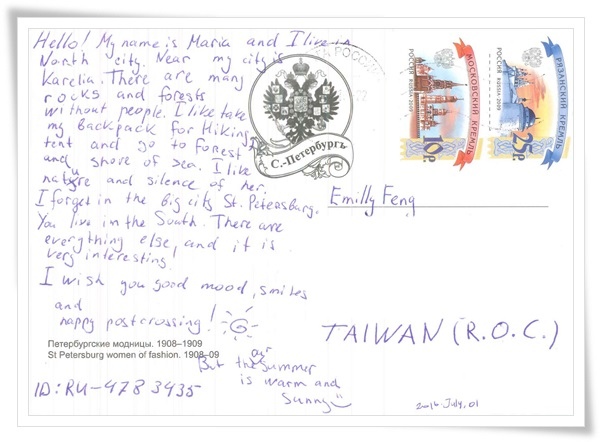 Hello! My name is Maria and I live in
North city. Near my city is
Karelia. There are many
rocks and forests
without people. I like take
my backpack for Hiking,
tent and go to forest
and shore of sea. I like
nature and silence of her.
I forget in the big city St. Petersburg.
You live in the South. There are
everything else, and it is
very interesting!
I wish you good mood, smiles
and
happy postcrossing!
Петербургские модницы. 1908–1909
St Petersburg women of fashion. 1908–09
But the our summer
is warm and
sunny
ID: RU-4783435
С.-Петербургъ
РОССИЯ RUSSIA 2009
МОСКОВСКИЙ КРЕМЛЬ
10р.
РОССИЯ RUSSIA 2009
РЯЗАНСКИЙ КРЕМЛЬ
25р.
Emilly Feng
TAIWAN (R.O.C.)
2016 July, 01